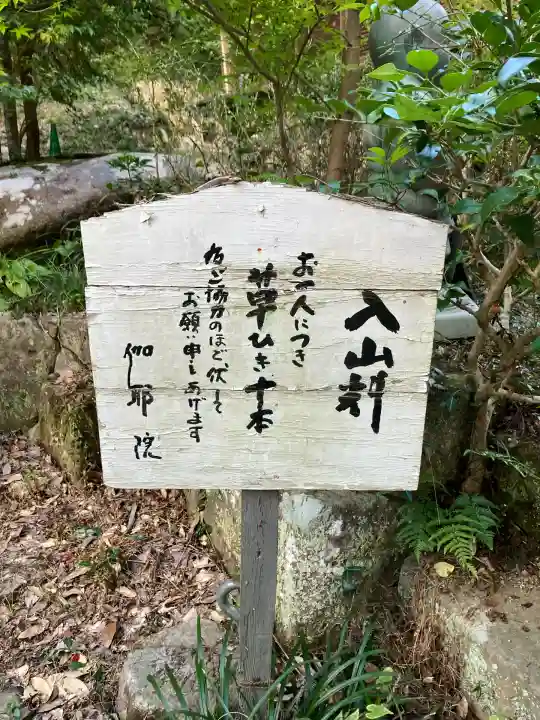 入山料
お一人につき
草ひき十本
なにご協力のほど、伏して
お願い申しあげます
伽耶院